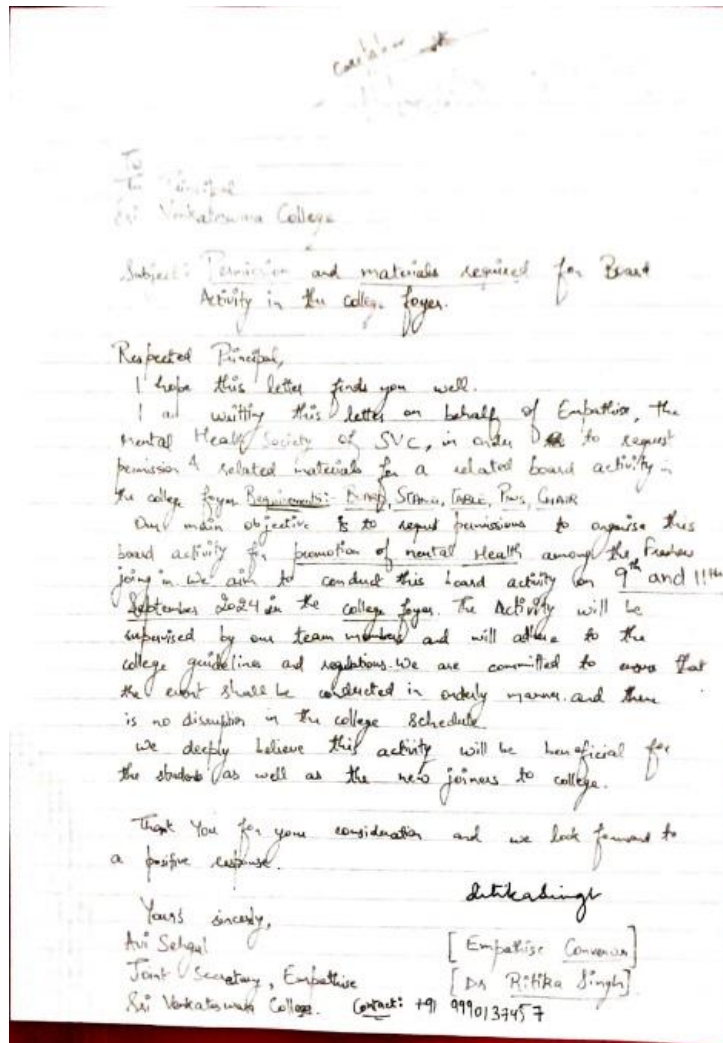 To
The Principal
Sri Venkateswara College
Subject: Permission and materials required for Board
Activity in the college foyer.
Respected Principal,
I hope this letter finds you well.
I a writting this letter on behalf of Empathise, the
Mental Health Society of SVC, in order to request
permission & related materials for a related board activity in
the college foyer Requirements:- BOARD, STAND, TABLE, PINS, CHAIR
Our main objective is to request permissions to organise this
board activity for promotion of mental Health among the Freshers
joining in. We aim to conduct this board activity on 9th and 11th
September 2024 in the college foyer. The Activity will be
supervised by our team members and will adhere to the
college guidelines and regulations. We are committed to ensure that
the event shall be conducted in orderly manner. and there
is no disruption in the college schedule
We deeply believe this activity will be beneficial for
the students as well as the new joiners to college.
Thank You for your consideration and we look forward to
a positive response.
Ritika Singh
Your's sincerely,
Avi Sehgal
[Empathise Convenor]
Joint Secretary, Empathise
[Dr Ritika Singh]
Sri Venkateswara College. Contact: +91 9990137457